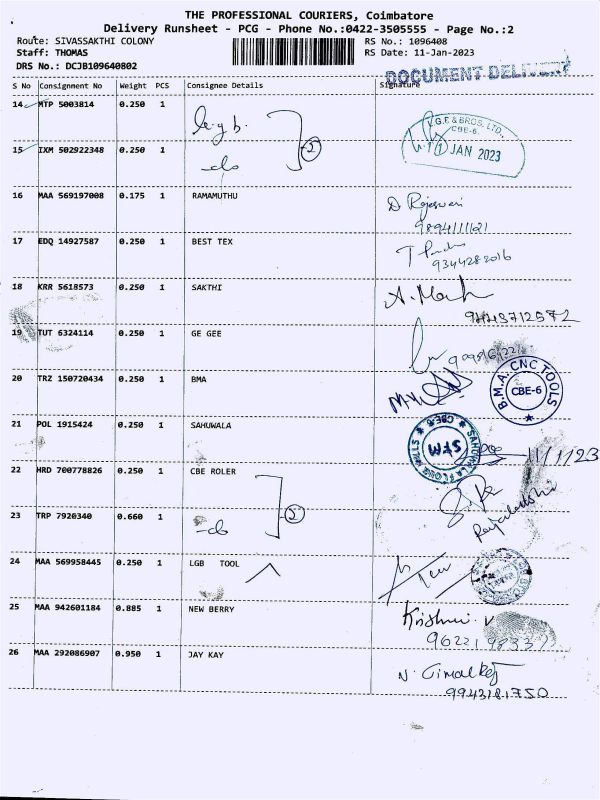 THE PROFESSIONAL COURIERS, Coimbatore
Delivery Runsheet - PCG - Phone No.:0422-3505555 - Page No.:2
Route: SIVASSAKTHI COLONY RS No.: 1096408
Staff: THOMAS RS Date: 11-Jan-2023
DRS No.: DCJB109640802
DOCUMENT DELIVERY
S No Consignment No Weight PCS Consignee Details Signature
14 MTP 5003814 0.250 1 L.G.B
L.G.E & BROS. LTD.,
CBE-6.
11 JAN 2023
15 IXM 502922348 0.250 1 -do 2
16 MAA 569197008 0.175 1 RAMAMUTHU D Rajeswari
9894111121
17 EDQ 14927587 0.250 1 BEST TEX
9344282016
18 KRR 5618573 0.250 1 SAKTHI
9443712572
19 TUT 6324114 0.250 1 GE GEE
20 TRZ 150720434 0.250 1 BMA
B.M.A. CNC TOOLS
CBE-6
21 POL 1915424 0.250 1 SAHUWALA
SAHUWALA FLOUR MILLS
CBE-6
SFM
11/1/23
22 HRD 700778826 0.250 1 CBE ROLER
23 TRP 7920340 0.660 1 -do 2
24 MAA 569958445 0.250 1 LGB TOOL
25 MAA 942601184 0.885 1 NEW BERRY
26 MAA 292086907 0.950 1 JAY KAY
9943181750